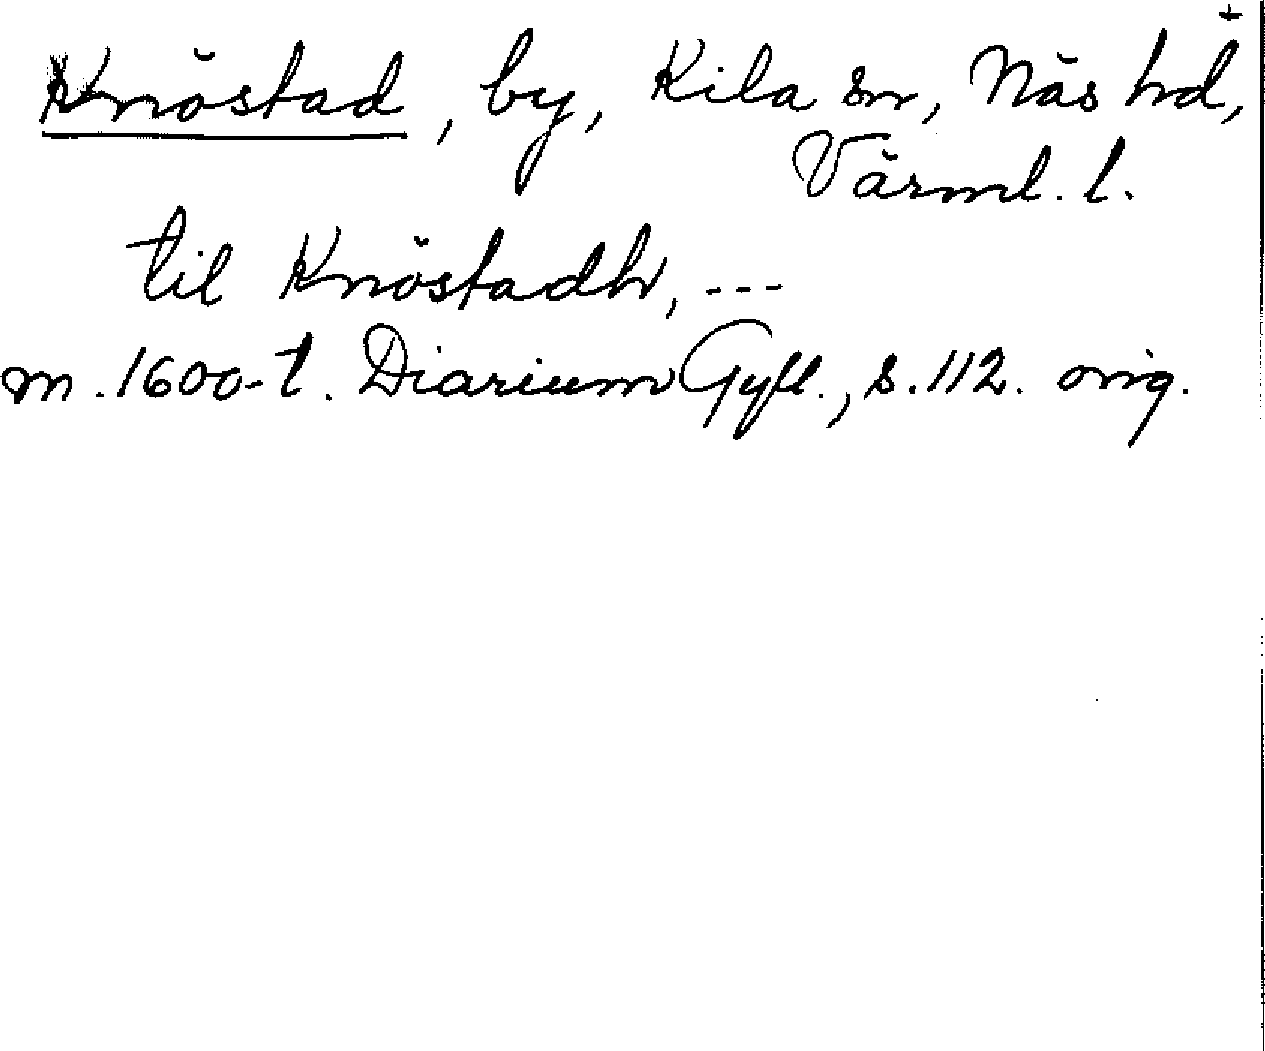 Knöstad, by, Kila sn, Näs hd,
Värml. l.
til Knöstadh, ---
m. 1600-t. Diarium Gyll., s. 112. orig.